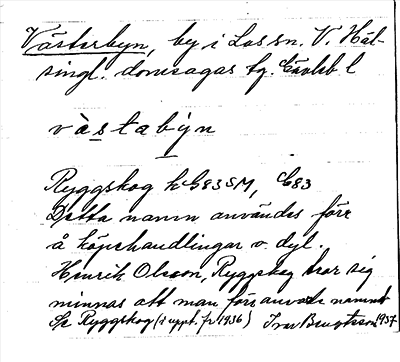 Västerbyn, by i Los sn. V. Häl-
singl. domsagas tg. Gävleb. l
västabýn
Ryggskog
Detta namn användes förr
å köpehandlingar o. dyl.
Henrik Olsson, Ryggskog tror sig
minnas att man förr använde namnet
Ryggskog (i uppt. fr 1936) Ivar Bengtsson 1937